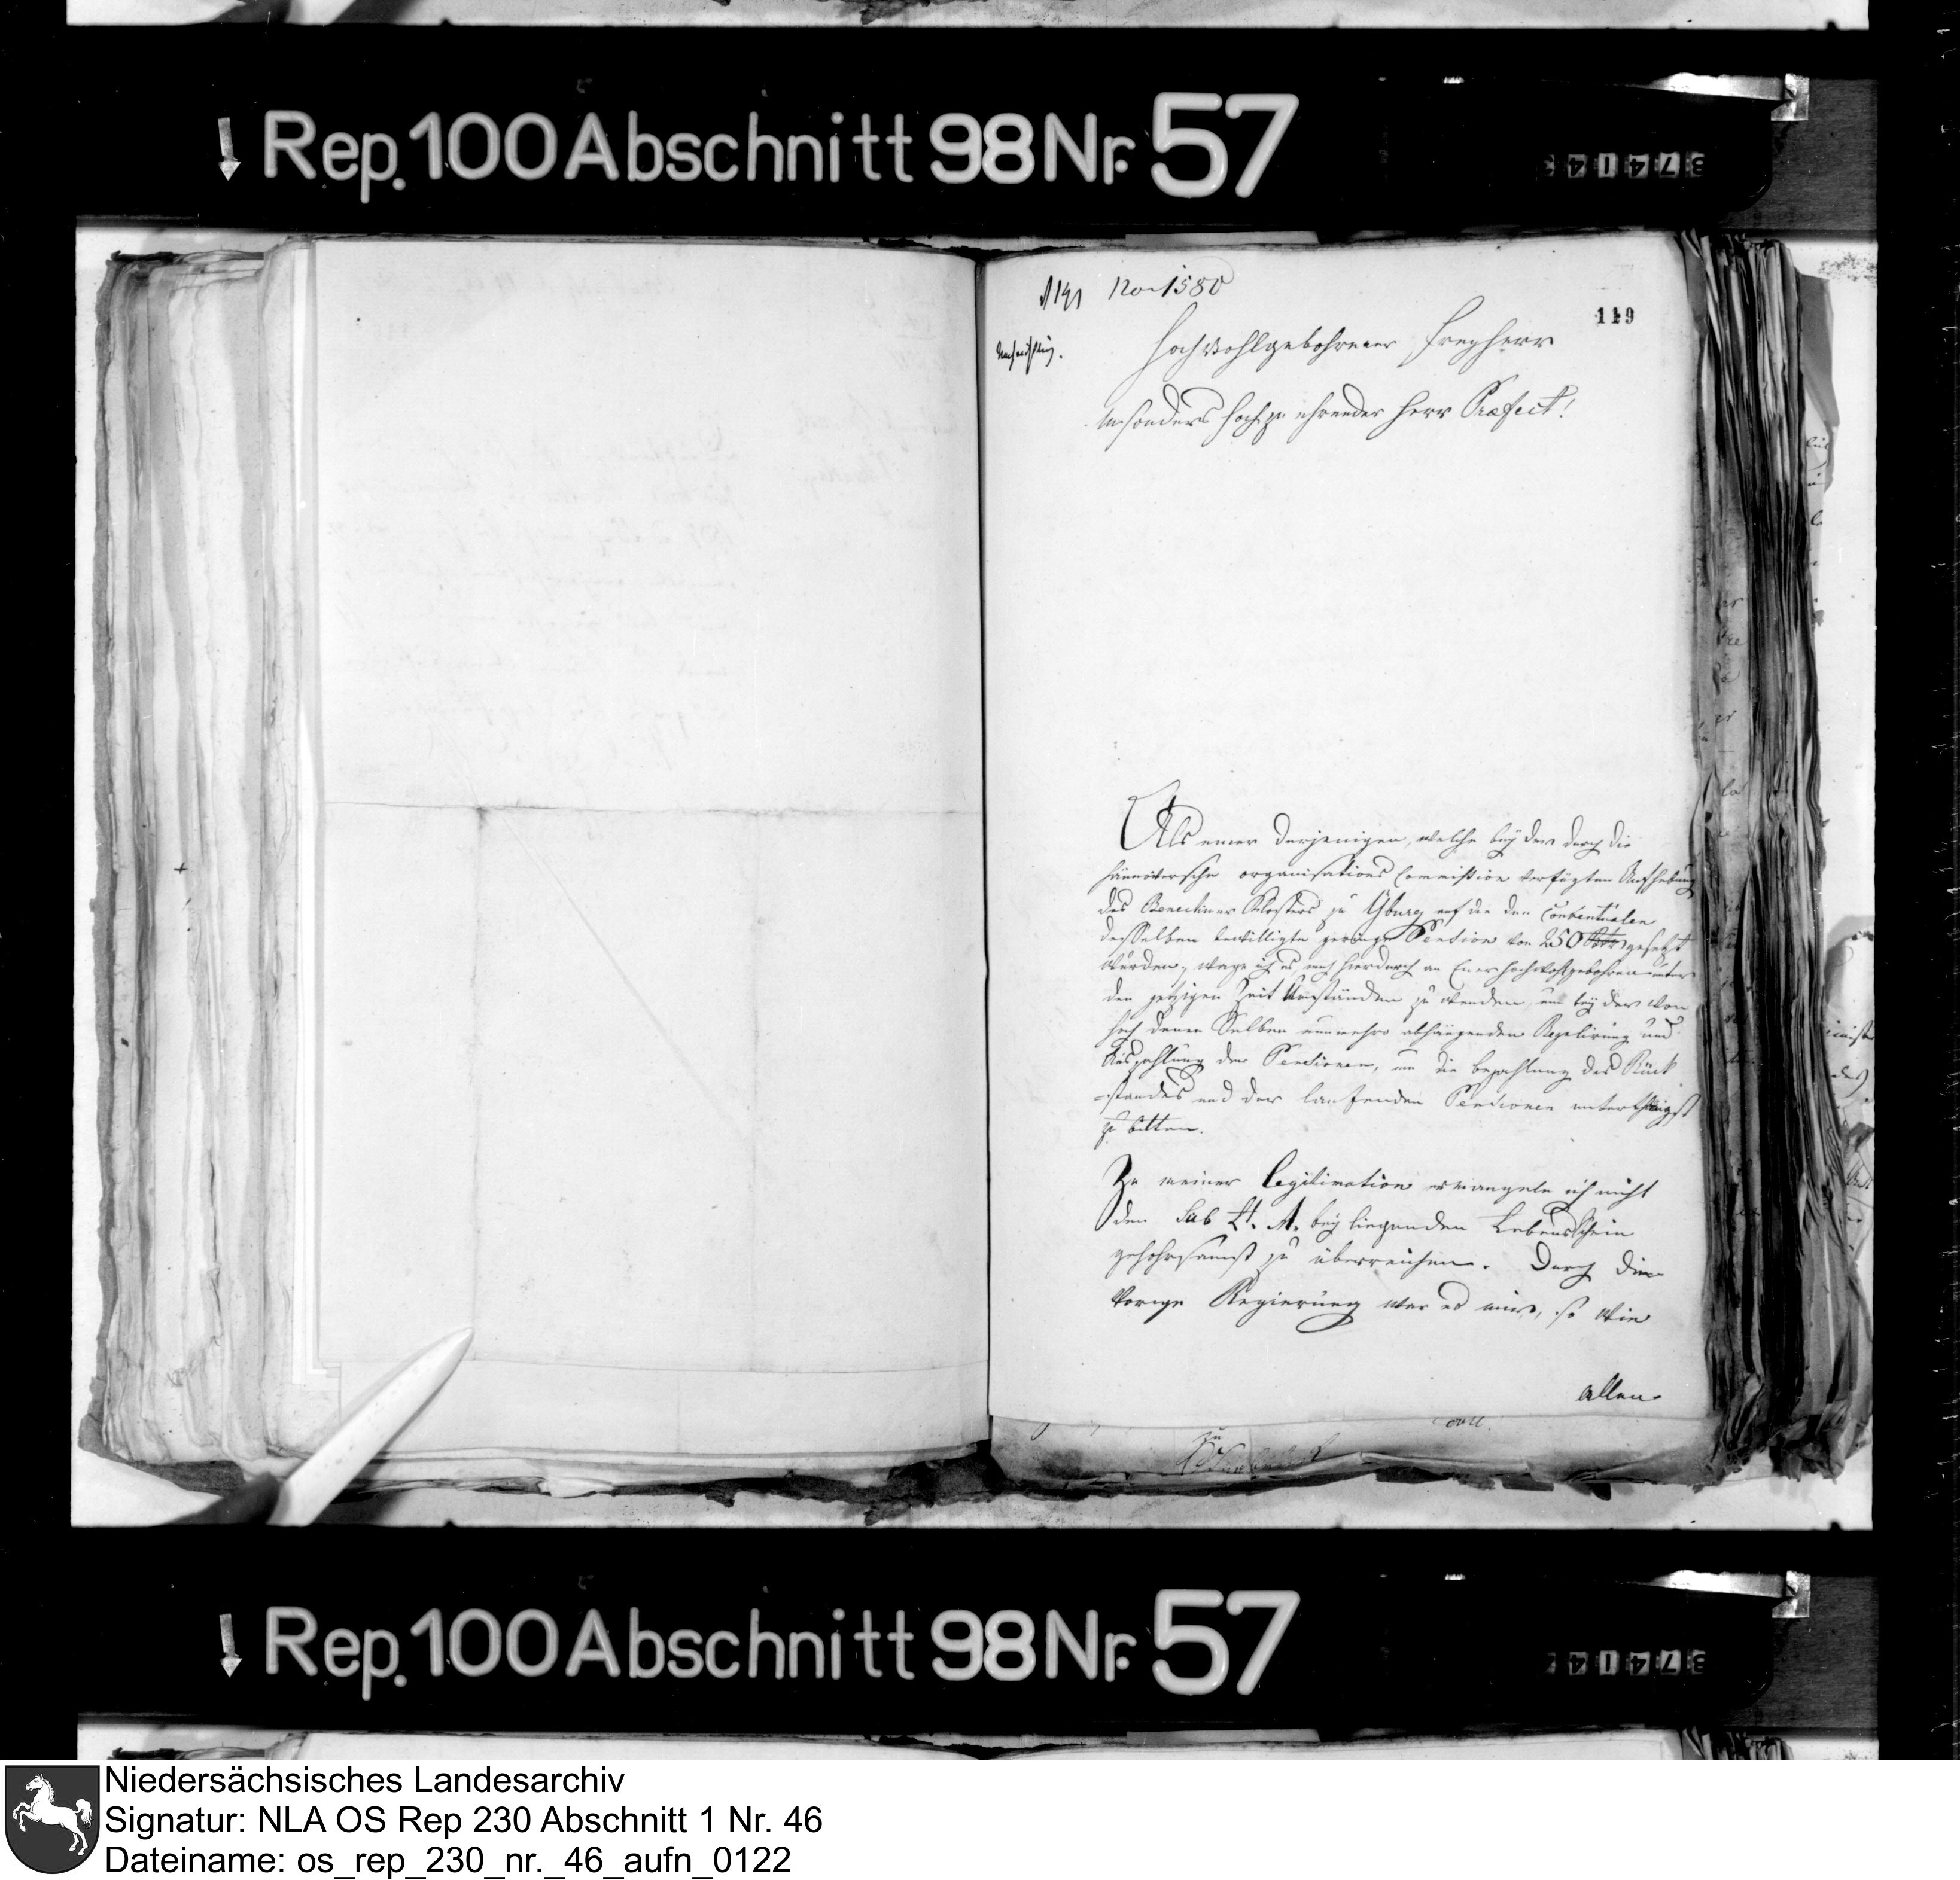 Rep. 100 Abschnitt 98 Nr. 57
1191 No 1580
119
Hochwohlgebohrner Freyherr
Insonders hochzuehrender Herr Præfect!
Als einer derjenigen, welche bey der durch die
hännoversche organisations Commission verfügten Aufhebung
des Benectiner Klosters zu Yburg auf die den Conventualen
desselben bewilligte geringe Pension von 250 gesetzt
wurden, wage ich es mich hierdurch an Euer Hochwohlgebohren unter
den jetzigen Zeit Umständen zu wenden, und bey der von
hoch denen Selben nunmehro abhängenden Regulirung und
Auszahlung der Pensionen, um die bezahlung des Rück
=standes und der laufenden Pensionen unterthänigst
zu bitten.
Zu meiner Legitimation ermangele ich nicht
den sub Lt. A. bey liegenden Lebensschein
gehohrsamst zu überreichen. Durch die
vorige Regierung war es mir, so wie
allen
Rep. 100 Abschnitt 98 Nr. 57
Niedersächsisches Landesarchiv
Signatur: NLA OS Rep 230 Abschnitt 1 Nr. 46
Dateiname: os_rep_230_nr._46_aufn_0122